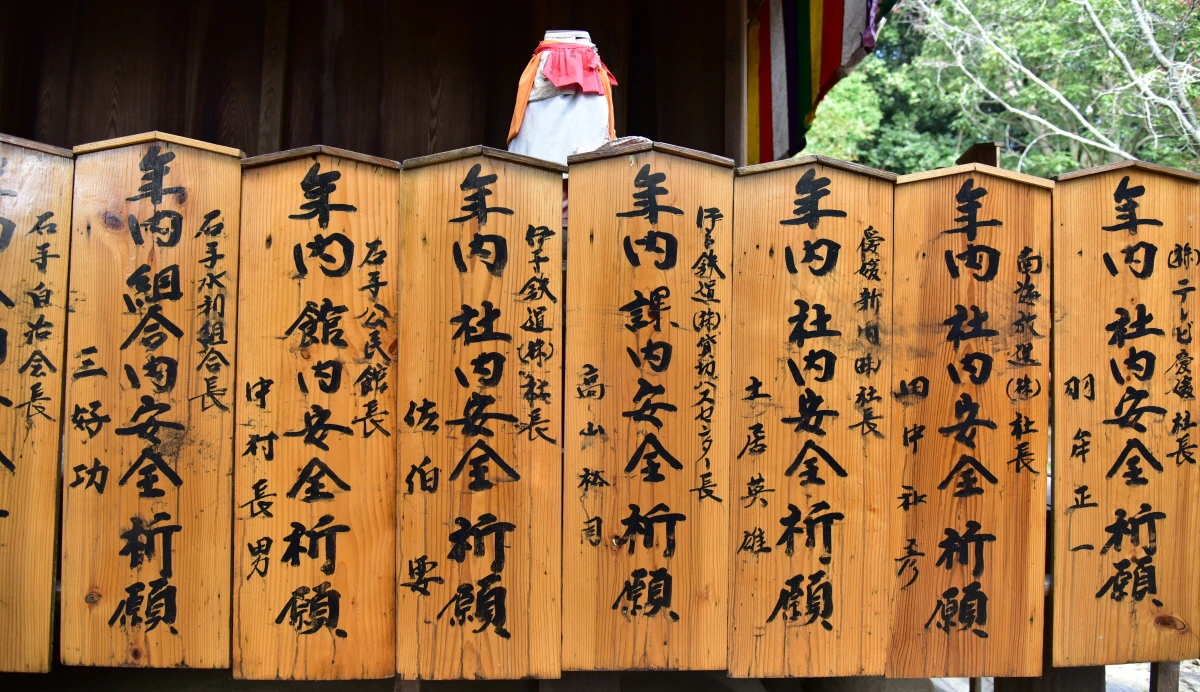 (株)テレビ愛媛 社長
年内 社内安全 祈願
羽牟正一
南海放送(株)社長
年内 社内安全 祈願
田中和彦
愛媛新聞(株)社長
年内 社内安全 祈願
土居英雄
伊予鉄道(株)貸切バスセンター長
年内 課内安全 祈願
高山松司
伊予鉄道(株)社長
年内 社内安全 祈願
佐伯要
石手公民館長
年内 館内安全 祈願
中村長男
石手水利組合長
年内 組合内安全 祈願
三好功
石手自治会長